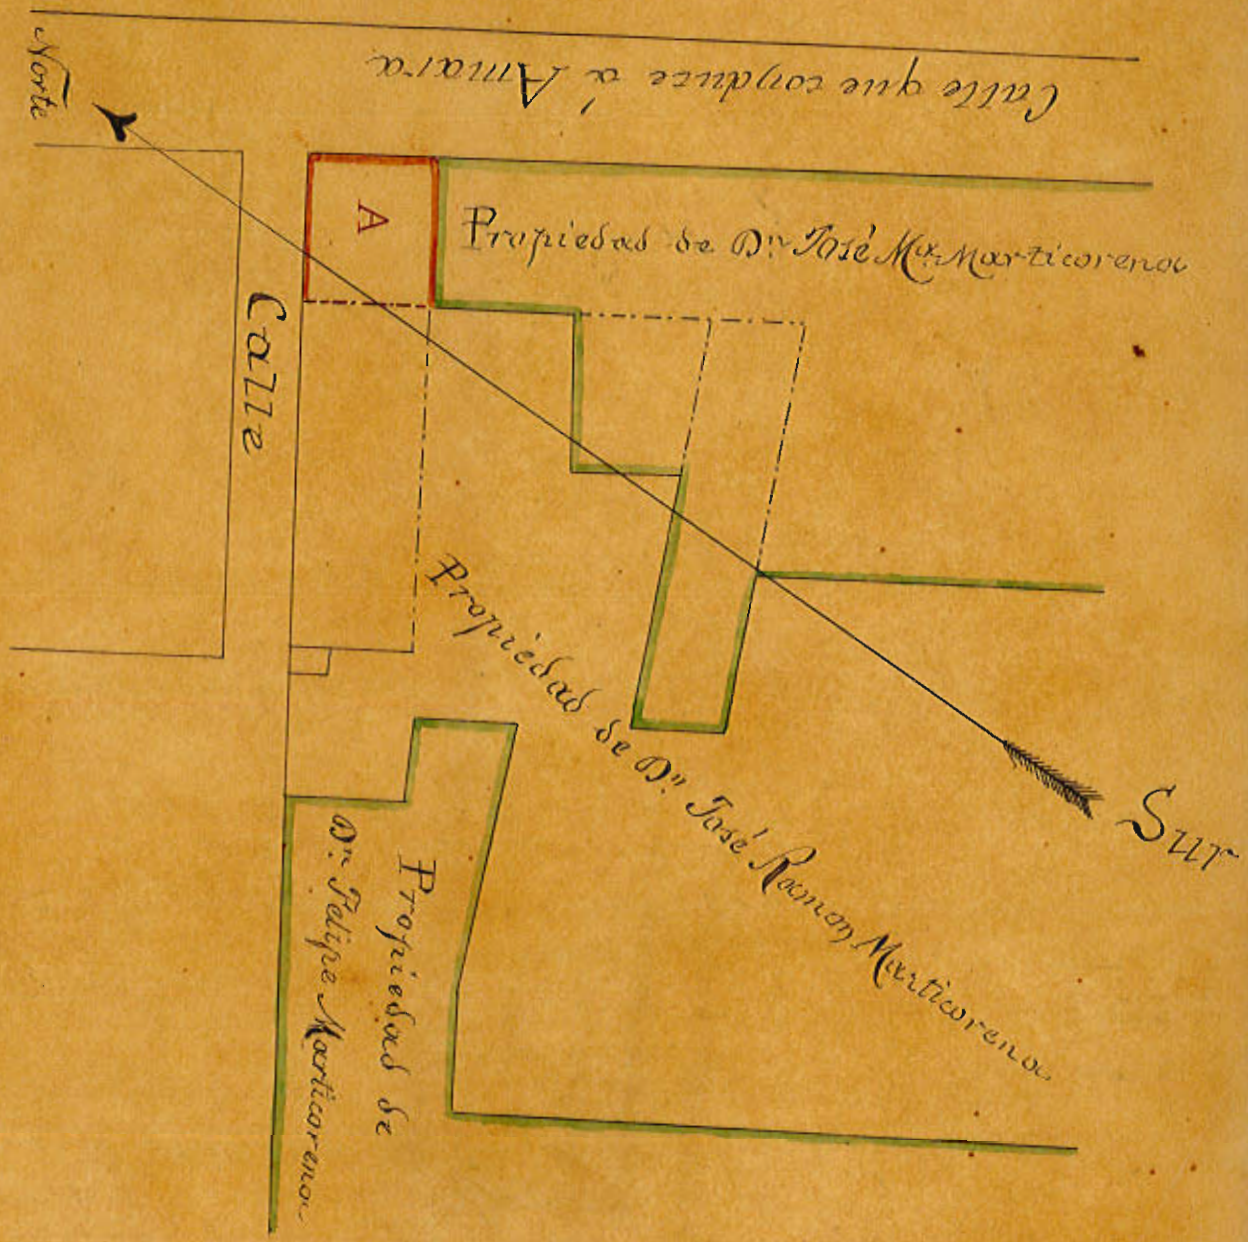 Calle que conduce á Amara
Norte
A
Propiedad de Dn José Ma Marticorena
Calle
Propiedad de Dn José Ramon Marticorena
Sur
Propiedad de
Dn Felipe Marticorena